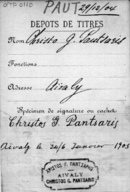 PAUT 29/12/04
DEPOTS DE TITRES
Nom Christo G. Pantsaris
Fonctions
Adresse Aivaly
Spécimen de signature ou cachet
Christos G. Pantsaris
Aivaly le 20/6 Janvier 1905
CHRISTOS G. PANTSARIS